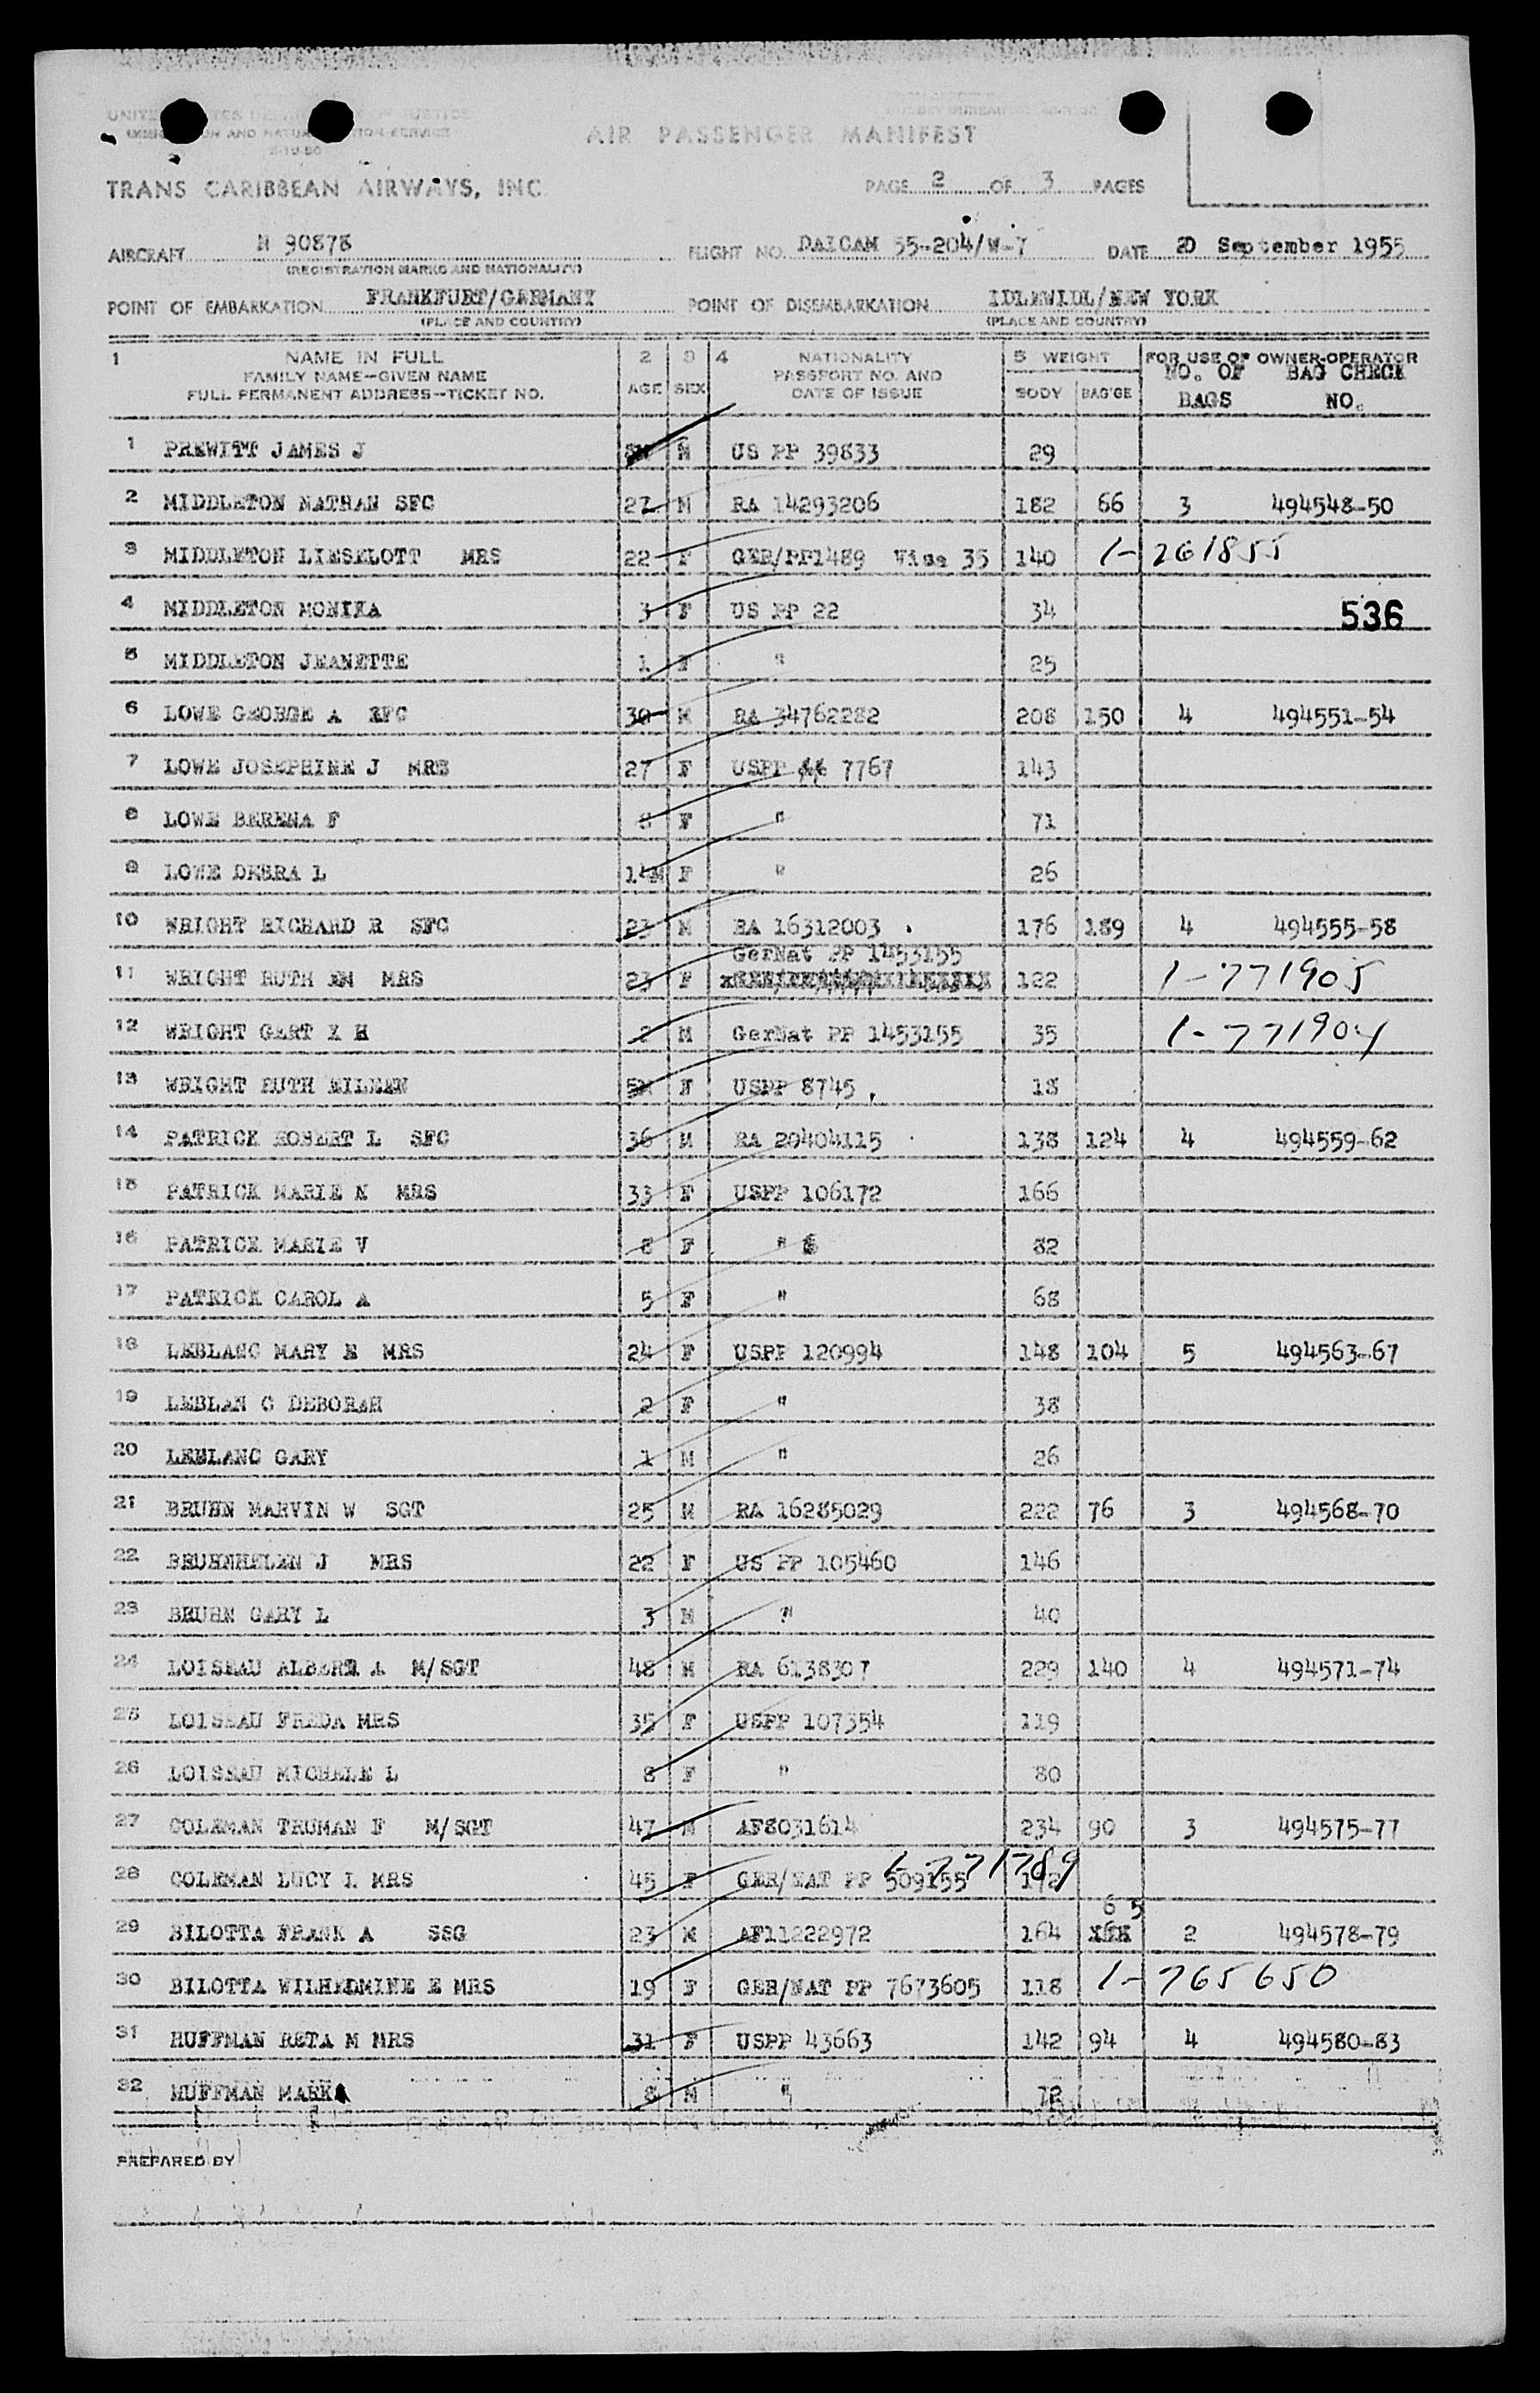 UNITED STATES DEPARTMENT OF JUSTICE
IMMIGRATION AND NATURALIZATION SERVICE
AIR PASSENGER MANIFEST
TRANS CARIBBEAN AIRWAYS, INC.
PAGE 2 OF 3 PAGES
AIRCRAFT N 90878 FLIGHT NO. DAICAM 55-204/W-7 DATE 20 September 1955
(REGISTRATION MARKS AND NATIONALITY)
POINT OF EMBARKATION FRANKFURT/GERMANY POINT OF DISEMBARKATION IDLEWIDL/NEW YORK
(PLACE AND COUNTRY) (PLACE AND COUNTRY)
1 NAME IN FULL 2 3 4 NATIONALITY 5 WEIGHT FOR USE OF OWNER-OPERATOR
FAMILY NAME—GIVEN NAME AGE SEX PASSPORT NO. AND BODY BAG'GE NO. OF BAG CHECK
FULL PERMANENT ADDRESS—TICKET NO. DATE OF ISSUE BAGS NO.
1 PREWITT JAMES J M US PP 39833 29
2 MIDDLETON NATHAN SFC 27 M RA 14293206 182 66 3 494548-50
3 MIDDLETON LIESELOTT MRS 22 F GER/PP1489 Visa 35 140 1-761855
4 MIDDLETON MONIKA 3 F US PP 22 34 536
5 MIDDLETON JEANETTE 1 F " 25
6 LOWE GEORGE A 30 M RA 34762282 208 150 4 494551-54
7 LOWE JOSEPHINE J MRS 27 F USPP 7767 143
8 LOWE BERENA F 8 F " 71
9 LOWE DEBRA L 14M F " 26
10 WRIGHT RICHARD R SFC 23 M RA 16312003 176 189 4 494555-58
GerNat PP 1453155
11 WRIGHT RUTH EM MRS 23 F 122 1-771905
12 WRIGHT GERT K H 2 M GerNat PP 1453155 35 1-771904
13 WRIGHT RUTH EILEEN 5M F USPP 8745 18
14 PATRICK ROBERT L SFC 36 M RA 20404115 138 124 4 494559-62
15 PATRICK MARIE N MRS 33 F USPP 106172 166
16 PATRICK MARIE V 8 F " 82
17 PATRICK CAROL A 5 F " 68
18 LEBLANC MARY E MRS 24 F USPP 120994 148 104 5 494563-67
19 LEBLAN C DEBORAH 2 F " 38
20 LEBLANC GARY 1 M " 26
21 BRUHN MARVIN W SGT 25 M RA 16285029 222 76 3 494568-70
22 BRUHNHELEN J MRS 22 F US PP 105460 146
23 BRUHN GARY L 3 M " 40
24 LOISEAU ALBERT A M/SGT 48 M RA 6138307 229 140 4 494571-74
25 LOISEAU FREDA MRS 35 F USPP 107354 119
26 LOISEAU MICHELE L 8 F " 80
27 COLEMAN TRUMAN F M/SGT 47 M AF8031614 234 90 3 494575-77
28 COLEMAN LUCY I MRS 45 F GER/NAT PP 509155 1-771789
65
29 BILOTTA FRANK A SSG 23 M AF11222972 164 2 494578-79
30 BILOTTA WILHELMINE E MRS 19 F GER/NAT PP 7673605 118 1-765650
31 HUFFMAN RETA M MRS 31 F USPP 43663 142 94 4 494580-83
32 HUFFMAN MARK 8 M " 72
PREPARED BY